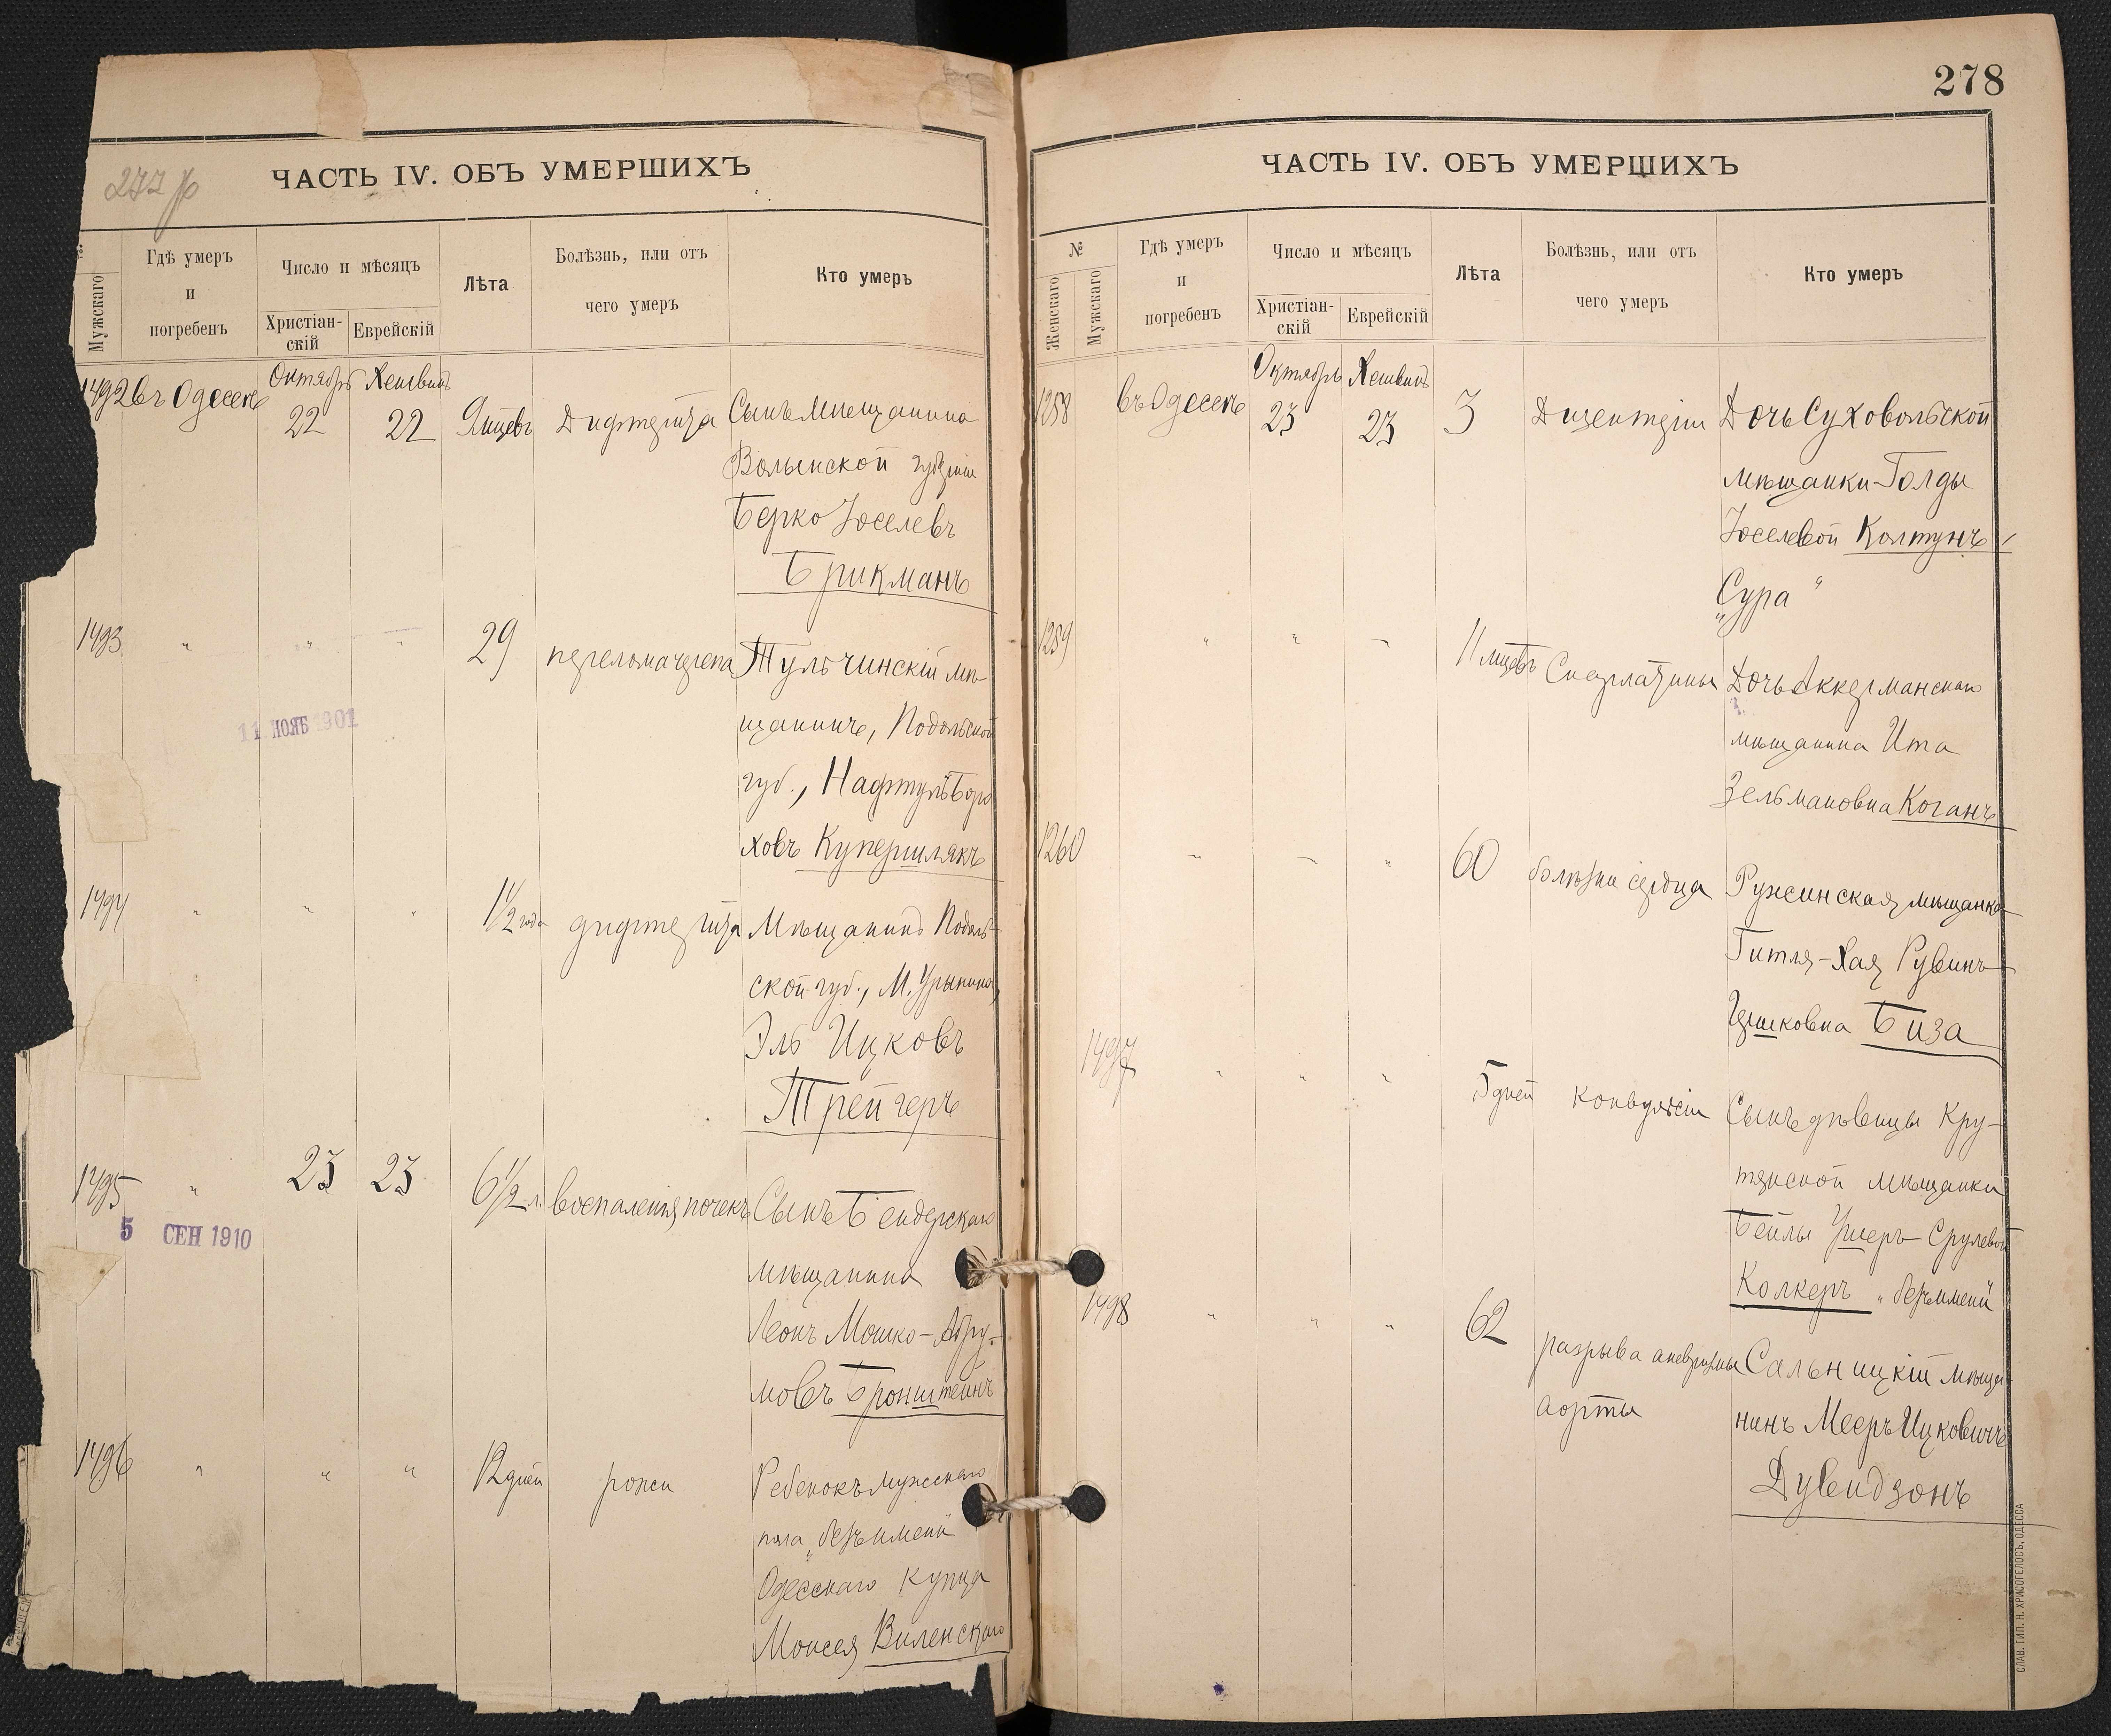 277 р
ЧАСТЬ IV. ОБЪ УМЕРШИХЪ
Мужскаго
Гдѣ умеръ
и
погребенъ
Число и мѣсяцъ
Христіан-
скій
Еврейскій
Лѣта
Болѣзнь, или отъ
чего умеръ
Кто умеръ
1492 въ Одессѣ Октябрь 22 Хешвинъ 22 9 мцевъ Дифтерита Сынъ мѣщанина
Волынской губерніи
Берко Іоселевъ
Брикманъ
1493 " " " 29 перелома черепа Тульчинскій мѣ-
щанинъ, Подольской
губ., Нафтуль Боро
ховъ Купершлякъ
11 НОЯБ 1901
1494 " " " 1 1/2 года дифтерита Мѣщанинъ Подоль-
ской губ., М.
Эль Ицковъ
Трейгеръ
1495 " 23 23 6 1/2 л. воспаленія почекъ Сынъ Бендерскаго
мѣщанина
Леонъ Мошко-Абру-
мовъ Бронштейнъ
5 СЕН 1910
1496 " " " 12 дней рожи Ребенокъ мужскаго
пола „безъ имени"
Одесскаго купца
Моисея Виленскаго
278
ЧАСТЬ IV. ОБЪ УМЕРШИХЪ
№
Женскаго
Мужскаго
Гдѣ умеръ
и
погребенъ
Число и мѣсяцъ
Христіан-
скій
Еврейскій
Лѣта
Болѣзнь, или отъ
чего умеръ
Кто умеръ
1258 въ Одессѣ Октябрь 23 Хешвинъ 23 3 Дизентеріи Дочь Суховольской
мѣщанки Голды
Іоселевой Колтунъ
„Сура"
1259 " " " 11 мцевъ Скарлатины Дочь Аккерманскаго
мѣщанина Ита
Зельмановна Коганъ
1260 " " " 60 болѣзни сердца Ружинская мѣщанка
Гитля-Хая Рувинъ-
Гершковна Биза
1497 " " " 5 дней конвульсіи Сынъ дѣвицы Кру-
тянской мѣщанки
Бейлы Ушеръ-Срулевой
Колкеръ „безъ имени"
1498 " " " 62 разрыва аневризмы Сальницкій мѣща-
аорты нинъ Мееръ Ицковичъ
Дувидзонъ
СЛАВ. ТИП. Н. ХРИСОГЕЛОСЪ, ОДЕССА